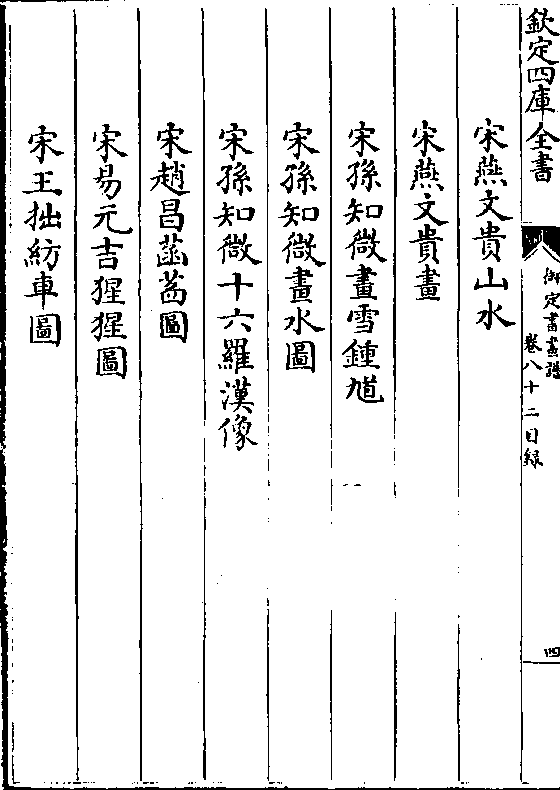 欽定四庫全書
御定書畫譜
卷八十二目録
四
宋燕文貴山水
宋燕文貴畫
宋孫知微畫雪鍾馗
宋孫知微畫水圖
宋孫知微十六羅漢像
宋趙昌菡萏圖
宋易元吉猩猩圖
宋王拙紡車圖